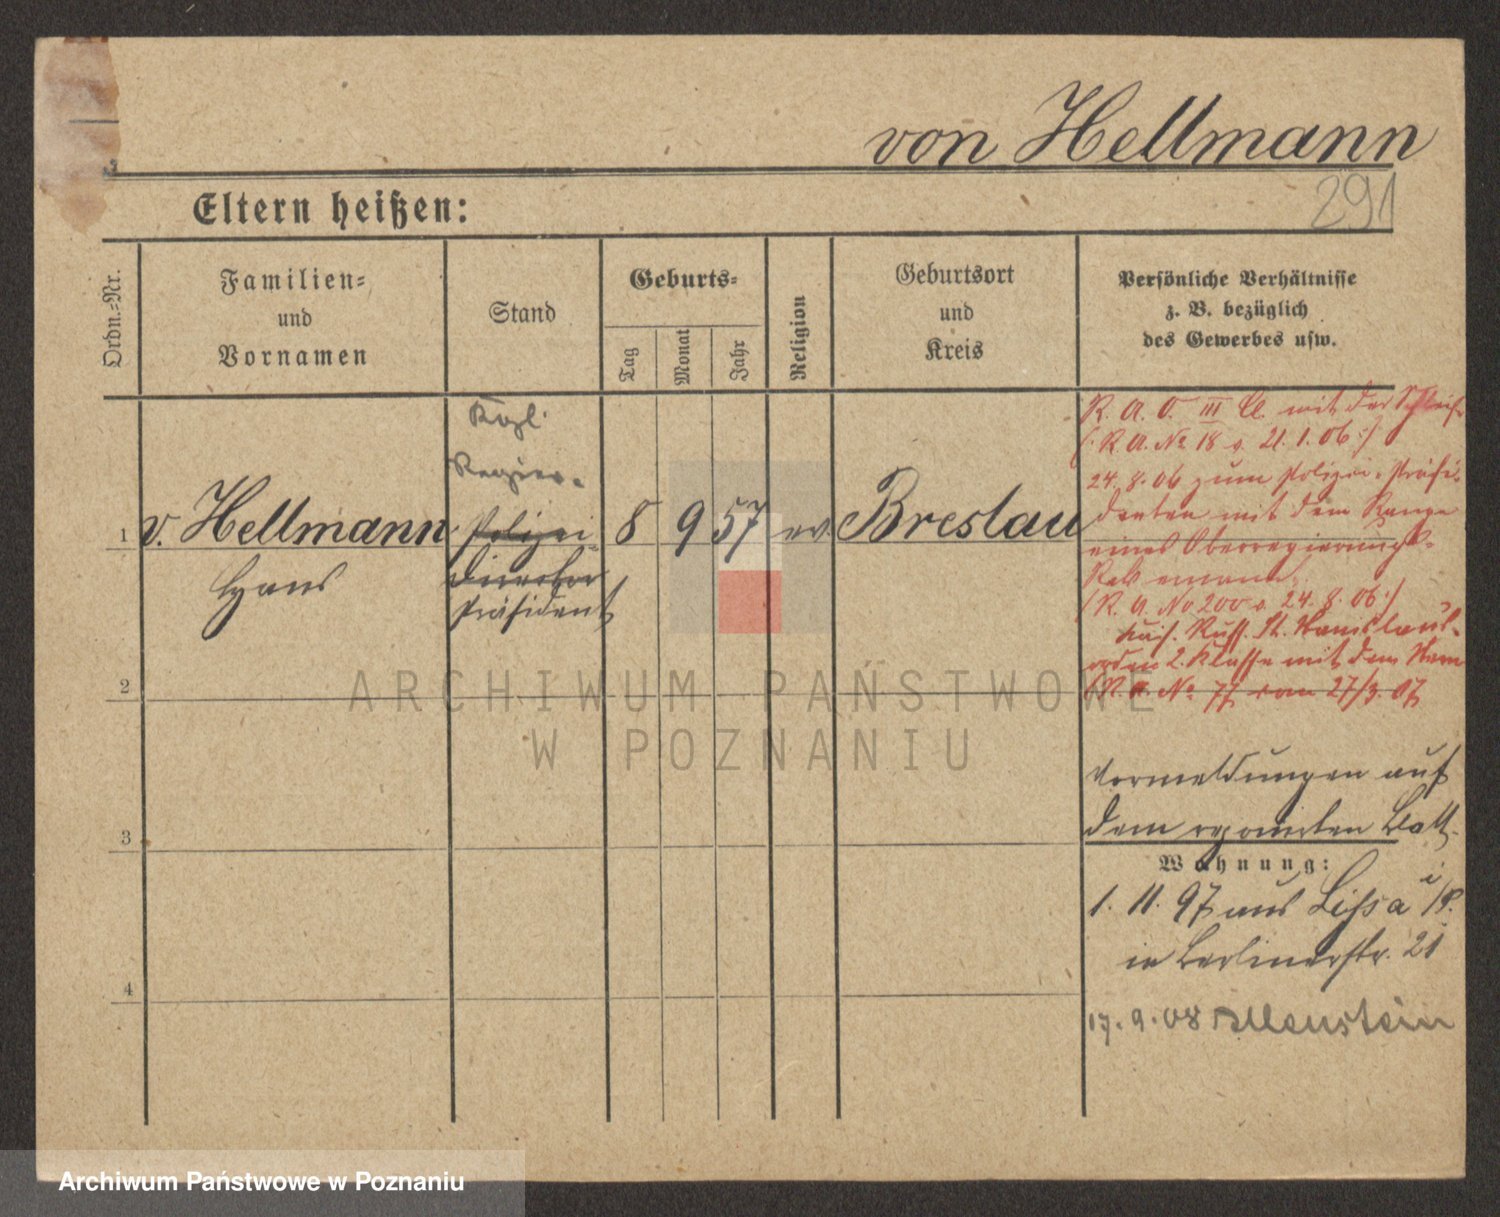 von Hellmann
291
Eltern heißen:
Ordn.-Nr.
Familien-
und
Vornamen
Stand
Geburts-
Tag
Monat
Jahr
Religion
Geburtsort
und
Kreis
Persönliche Verhältnisse
z. B. bezüglich
des Gewerbes usw.
Kgl.
Regier-
1 v. Hellmann Polizei- 8 9 57 ev. Breslau
Hans
Director
Präsident
R. A. O. III Cl. mit der Schleife
(: R. A. № 18 v. 21. 1. 06 :)
24. 8. 06 zum Polizei-Präsi-
denten mit dem Range
eines Oberregierungs-
Rats ernannt.
(R. A. No 200 v. 24. 8. 06 :)
Kais. Russ. St. Stanislaus-
orden 2. Klasse mit dem Stern
(R. A. № 77 vom 27/3. 07
2
3
4
Vormeldungen auf
dem reponirten Blatt.
Wohnung:
1. 11. 97 aus Lissa i/P.
in Berlinerstr. 21
17. 9. 08 Allenstein
ARCHIWUM PAŃSTWOWE
W POZNANIU
Archiwum Państwowe w Poznaniu